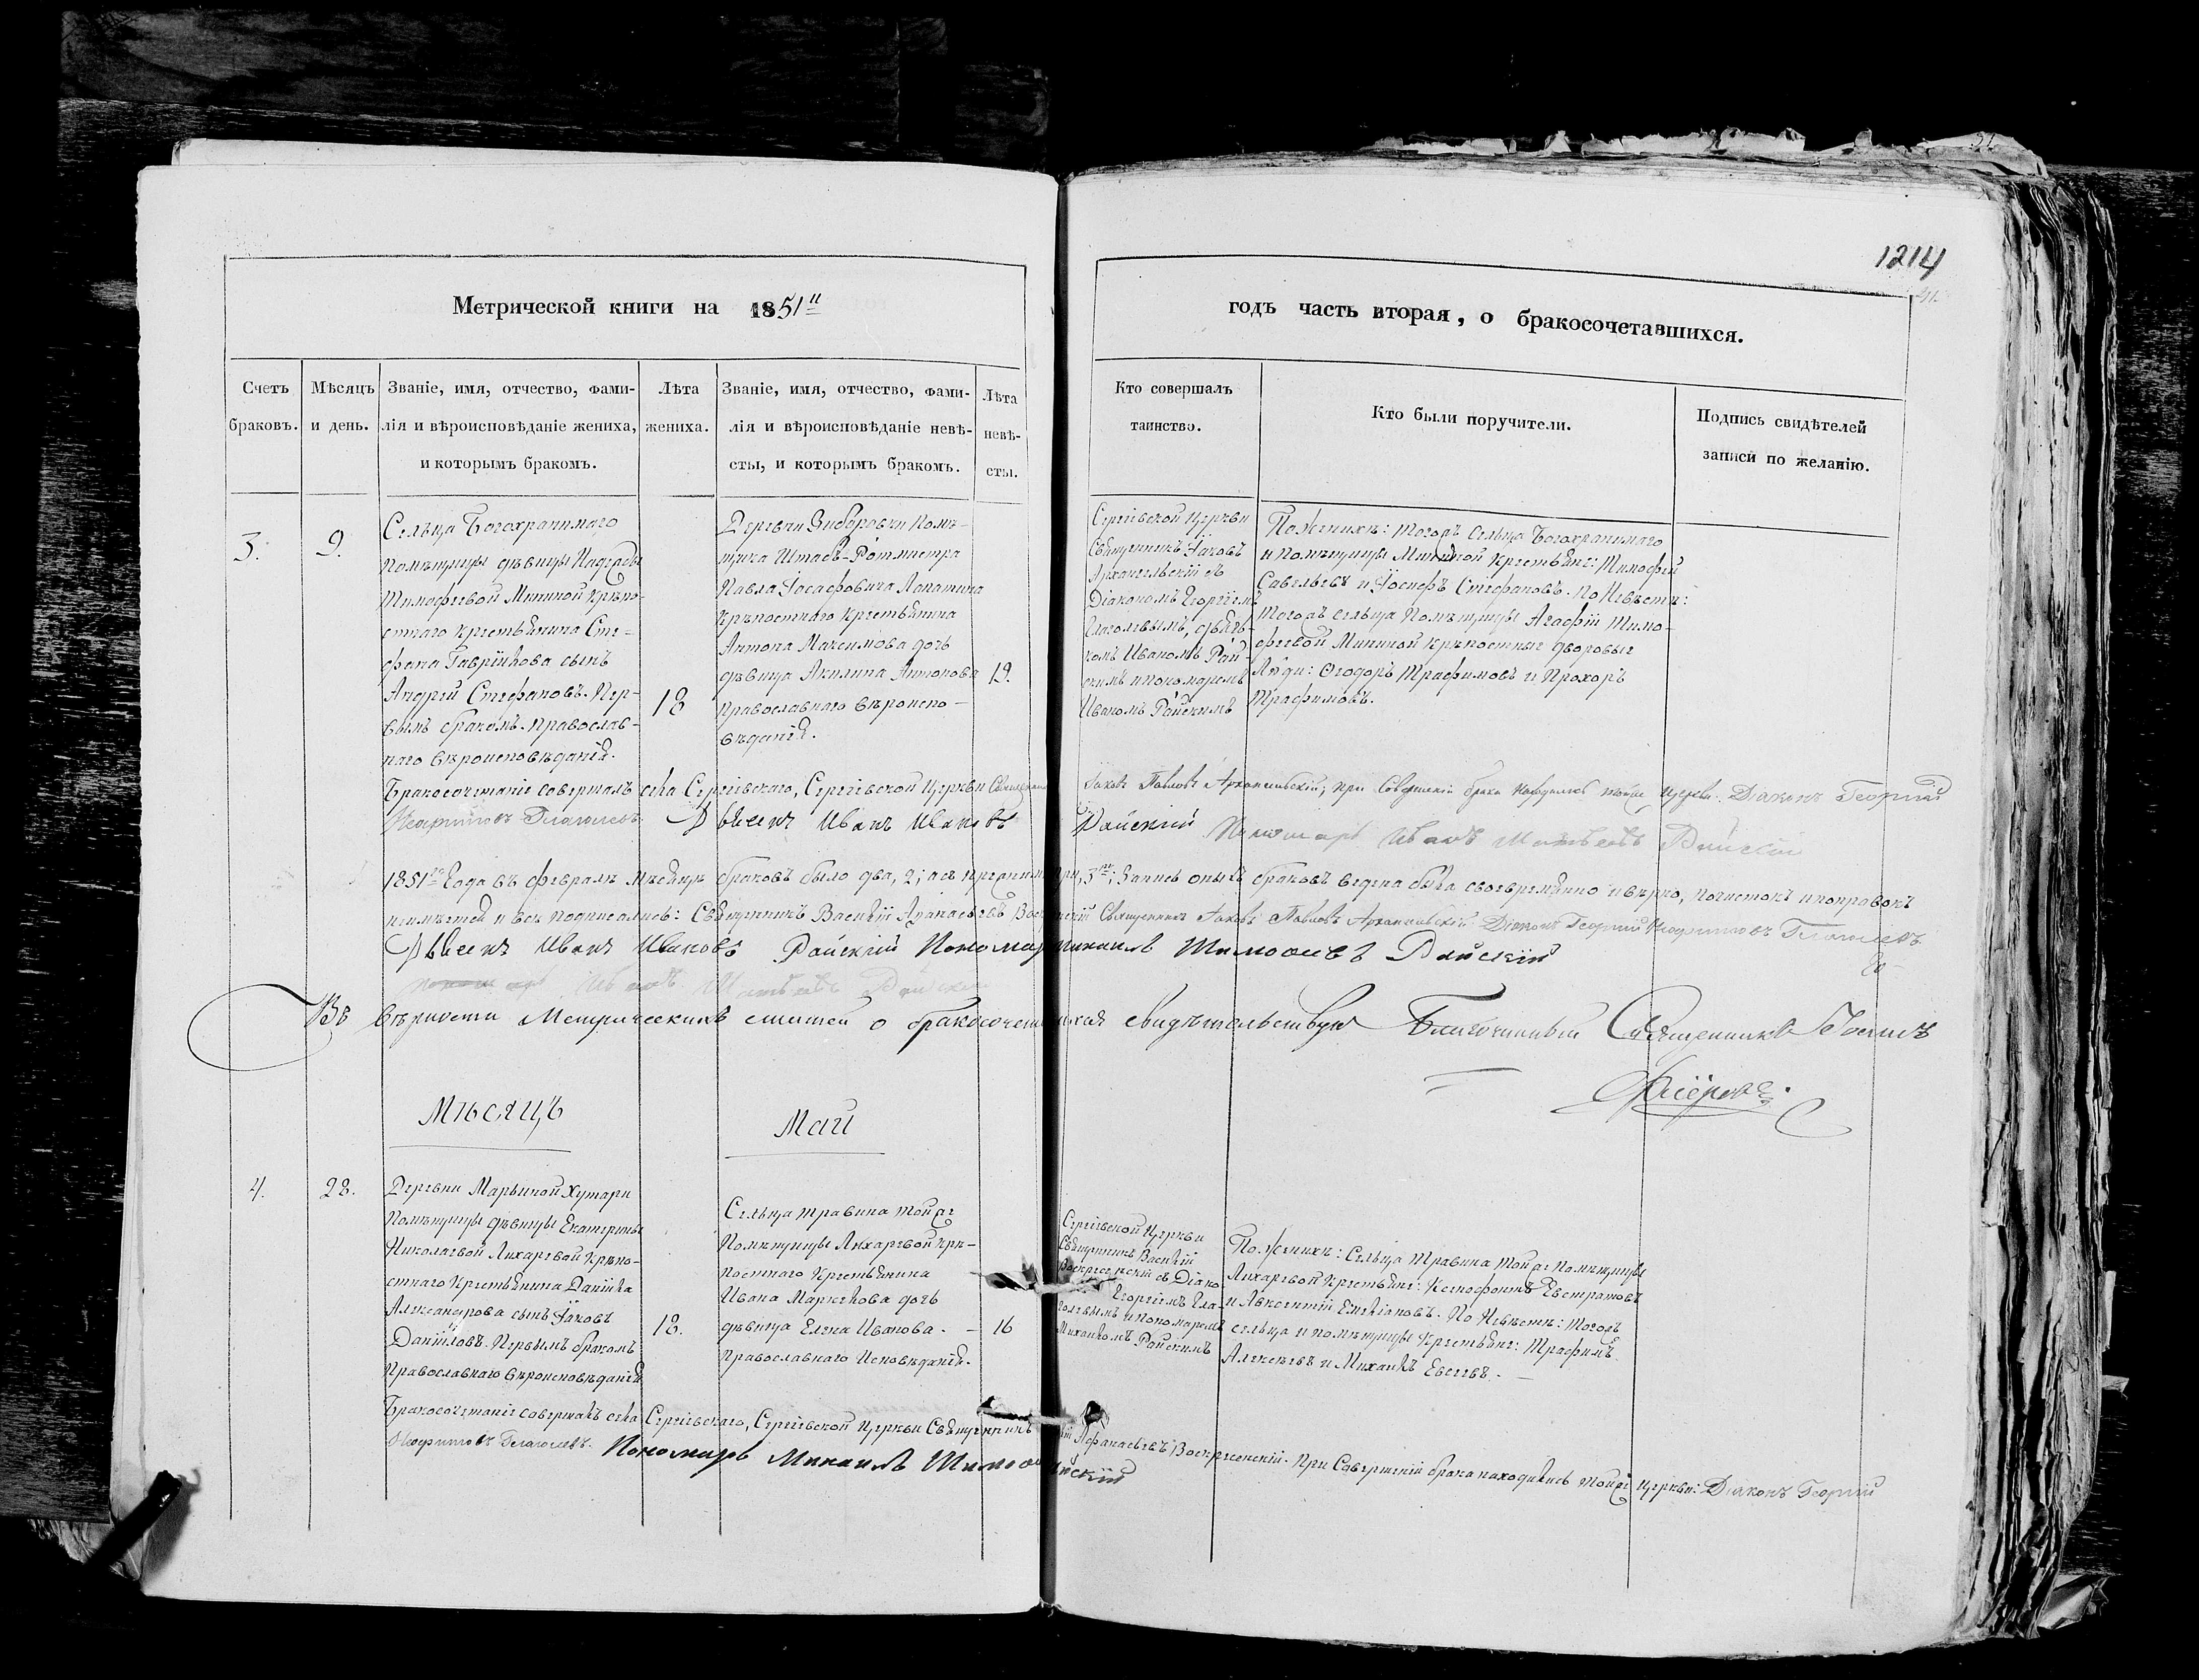 1214
Метрической книги на 1851й
годъ часть вторая, о бракосочетавшихся.
Счетъ браковъ.
Мѣсяцъ и день.
Званіе, имя, отчество, фами-
лія и вѣроисповѣданіе жениха,
и которымъ бракомъ.
Лѣта
жениха.
Званіе, имя, отчество, фами-
лія и вѣроисповѣданіе невѣ-
сты, и которымъ бракомъ.
Лѣта
невѣ-
сты.
Кто совершалъ
таинство.
Кто были поручители.
Подпись свидѣтелей
записи по желанію.
3.
9.
Сельца Богохранимаго
помѣщицы дѣвицы Надежды
Тимофѣевой Мининой крѣпо-
стнаго крестьянина Сте-
фана Гаврилова сынъ
Андрей Стефановъ. Пер-
вымъ бракомъ. Православ-
наго вѣроисповѣданія.
18
Деревни помѣ-
щика Штабъ-Ротмистра
Павла Іосафовича Лопатина
крѣпостнаго крестьянина
Антона Максимова дочь
дѣвица Акилина Антонова
православнаго вѣроиспо-
вѣданія.
19.
Сергіевской Церкви
Священникъ Іаковъ
Архангельскій съ
Діакономъ Георгіемъ
Глаголевымъ, дьяч-
комъ Иваномъ Рай-
скимъ и пономаремъ
Иваномъ Райскимъ
По женихѣ: тогожъ сельца Богохранимаго
и помѣщицы Мининой крестьяне: Тимофей
Савельевъ и Іосифъ Стефановъ. По невѣстѣ:
тогожъ сельца помѣщицы Агафіи Тимо-
фѣевой Мининой крѣпостные дворовые
люди: Ѳеодоръ Трафимовъ и Прохоръ
Трафимовъ.
Бракосочетаніе совершалъ села Сергіевскаго, Сергіевской Церкви Священникъ Іаковъ Павловъ Архангельскій; при совершеніи брака находились тойже церкви: Діаконъ Георгій
Неофитовъ Глаголевъ. Дьячекъ Иванъ Ивановъ Райскій Пономарь Иванъ Матвѣевъ Райскій
1851го Года въ февралѣ мѣсяцѣ браковъ было два, 2; а съ прежними три, 3ри; Запись оныхъ браковъ ведена была своевременно и вѣрно, почистокъ и поправокъ
неимѣется и всѣ подписались: Священникъ Василій Аѳанасьевъ Воскресенскій Священникъ Іаковъ Павловъ Архангельскій Діаконъ Георгій Неофитовъ Глаголевъ
Дьячекъ Иванъ Ивановъ Райскій Пономарь Михаилъ Тимоѳеевъ Райскій
Иванъ Матвѣевъ Райскій
Въ вѣрности Метрическихъ статей о бракосочетавшихся свидѣтельствую Благочинный Священникъ Іоаннъ
Мѣсяцъ Май
4.
28.
Деревни Марьиной Хутари
помѣщицы дѣвицы Екатерины
Николаевой Лихаревой крѣпо-
стнаго крестьянина Даніила
Александрова сынъ Іаковъ
Даніиловъ. Первымъ бракомъ
православнаго вѣроисповѣданія
18.
Сельца Травина тойже
помѣщицы Лихаревой крѣ-
постнаго крестьянина
Ивана Маркелова дочь
дѣвица Елена Иванова. –
православнаго исповѣданія.
16
Сергіевской Церкви
Священникъ Василій
Воскресенскій съ Діако-
Георгіемъ Гла-
голевымъ и пономаремъ
Михаиломъ Райскимъ
По женихѣ: Сельца Травина тойже помѣщицы
Лихаревой крестьяне: Ксенофонтъ Евстратовъ
и Авксентій Емеліановъ. По невѣстѣ: тогожъ
сельца и помѣщицы крестьяне: Трафимъ
Алексѣевъ и Михаилъ Евсеевъ. –
Бракосочетаніе совершалъ села Сергіевскаго, Сергіевской Церкви Священникъ Аѳанасьевъ Воскресенскій. При совершеніи брака находились тойже церкви: Діаконъ Георгій
Неофитовъ Глаголевъ. Пономарь Михаилъ